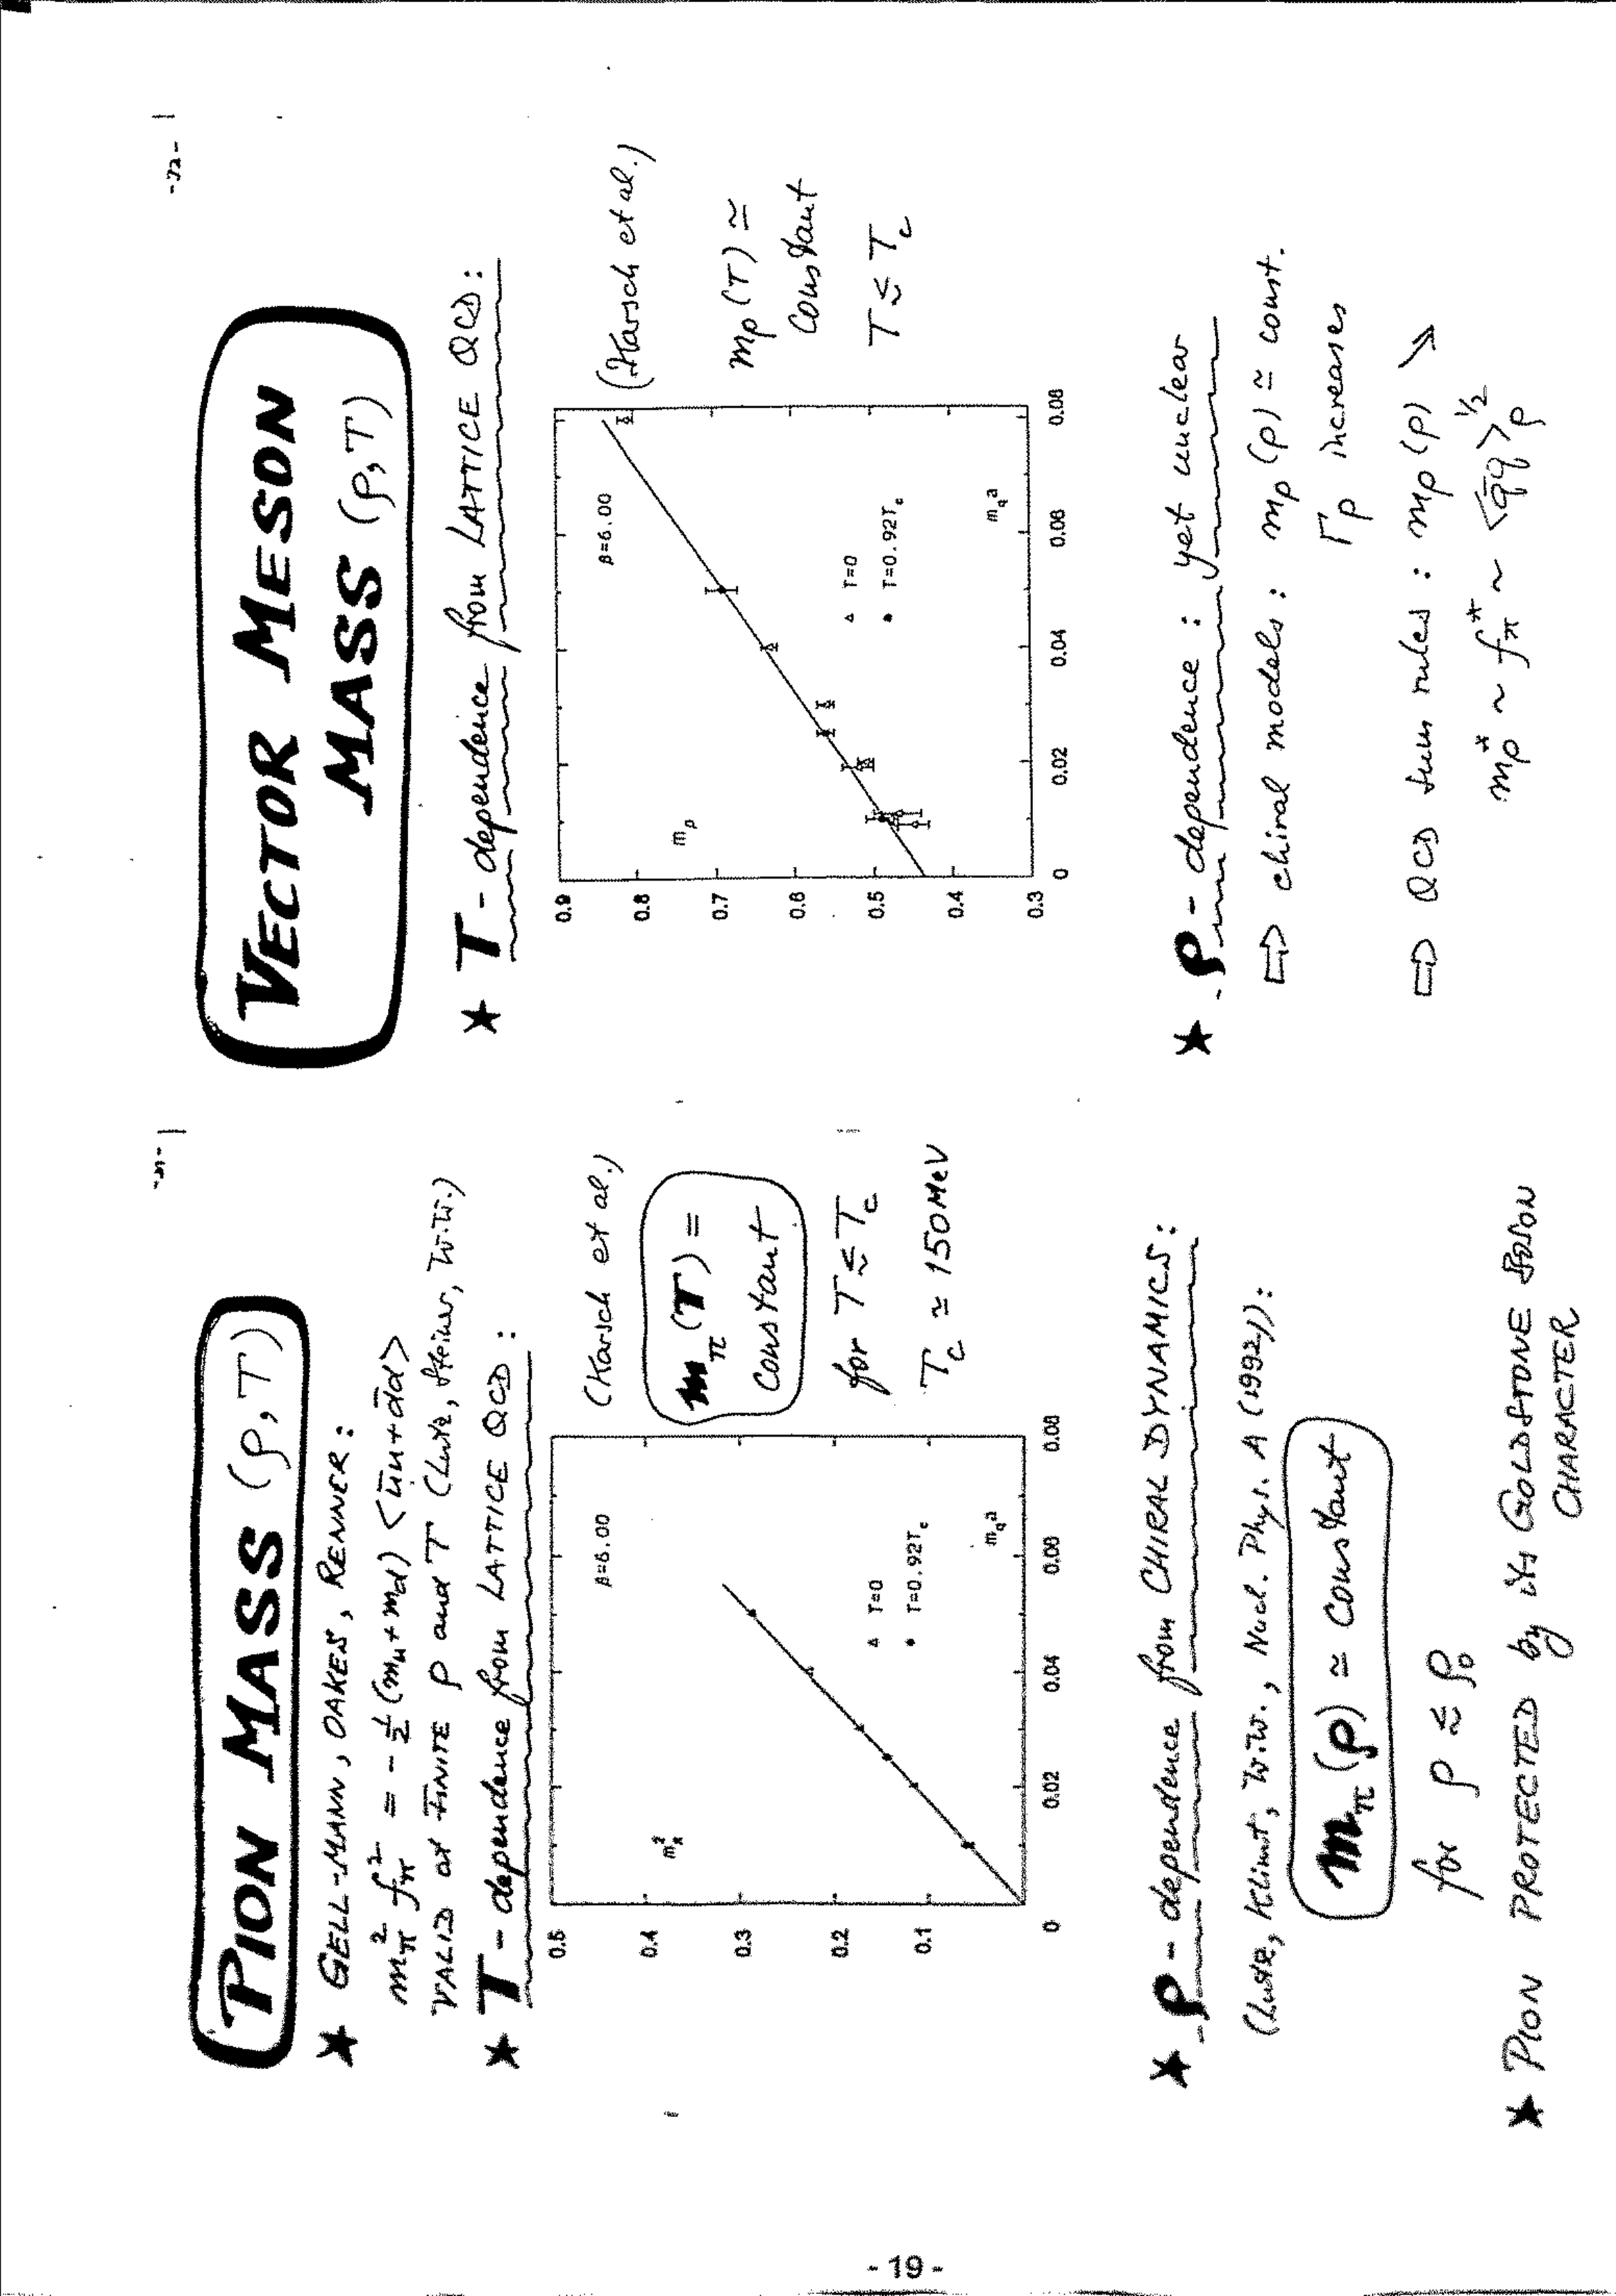 -21-
PION MASS (ρ,T)
★ GELL-MANN, OAKES, RENNER:
m_π^2 f_π^2 = -1/2 (m_u + m_d) <ūu + d̄d>
VALID at FINITE ρ and T (Lutz, Steiner, W.W.)
★ T - dependence from LATTICE QCD:
(Karsch et al.)
0.5
0.4
0.3
0.2
0.1
m_π^2
β=6.00
△ T=0
• T=0.92T_c
m_q a
0
0.02
0.04
0.06
0.08
m_π(T) =
constant
for T ≲ T_c
T_c ≃ 150 MeV
★ ρ - dependence from CHIRAL DYNAMICS:
(Lutz, Klimt, W.W., Nucl. Phys. A (1992)):
m_π(ρ) ≃ constant
for ρ ≲ ρ_0
★ PION PROTECTED by its GOLDSTONE BOSON
CHARACTER
-22-
VECTOR MESON
MASS (ρ,T)
★ T - dependence from LATTICE QCD:
(Karsch et al.)
0.9
0.8
0.7
0.6
0.5
0.4
0.3
m_ρ
β=6.00
△ T=0
• T=0.92T_c
m_q a
0
0.02
0.04
0.06
0.08
m_ρ(T) ≃
constant
T ≲ T_c
★ ρ - dependence : yet unclear
⇨ chiral models : m_ρ(ρ) ≃ const.
Γ_ρ increases
⇨ QCD sum rules : m_ρ(ρ) ↘
m_ρ^* ~ f_π^* ~ <q̄q>_ρ^1/2
- 19 -